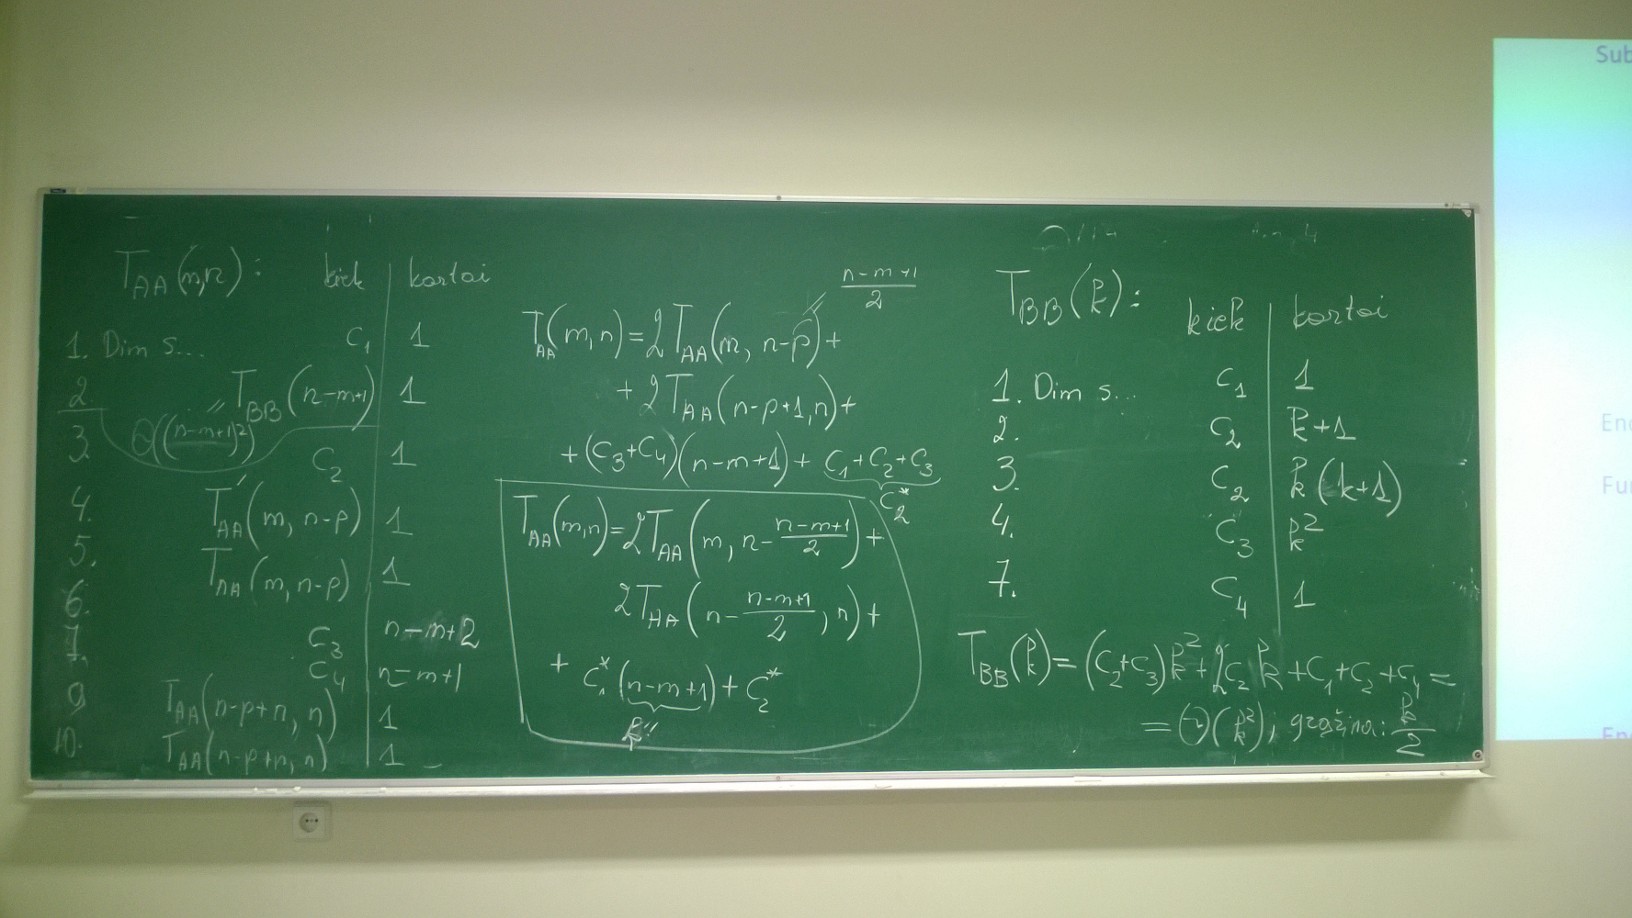 T_AA(m,n): kiek kartai
1. Dim s... c₁ 1
2. T_BB(n-m+1) 1
Θ((n-m+1)²)
3. c₂ 1
4. T_AA(m, n-p) 1
5. T_AA(m, n-p) 1
6. c₃ n-m+2
7. c₄ n-m+1
9. T_AA(n-p+n, n) 1
10. T_AA(n-p+m, n) 1
n-m+1 / 2
T_AA(m,n) = 2T_AA(m, n-p) +
+ 2T_AA(n-p+1, n) +
+ (c₃+c₄)(n-m+1) + c₁+c₂+c₃
c₂*
T_AA(m,n) = 2T_AA(m, n - (n-m+1)/2) +
2T_AA(n - (n-m+1)/2, n) +
+ c₁*(n-m+1) + c₂*
k
T_BB(k): kiek kartai
1. Dim s... c₁ 1
2. c₂ k+1
3. c₂ k(k+1)
4. c₃ k²
7. c₄ 1
T_BB(k) = (c₂+c₃)k² + 2c₂k + c₁+c₂+c₄ =
= Θ(k²); grąžina: k/2
Sub
End
Fun
End